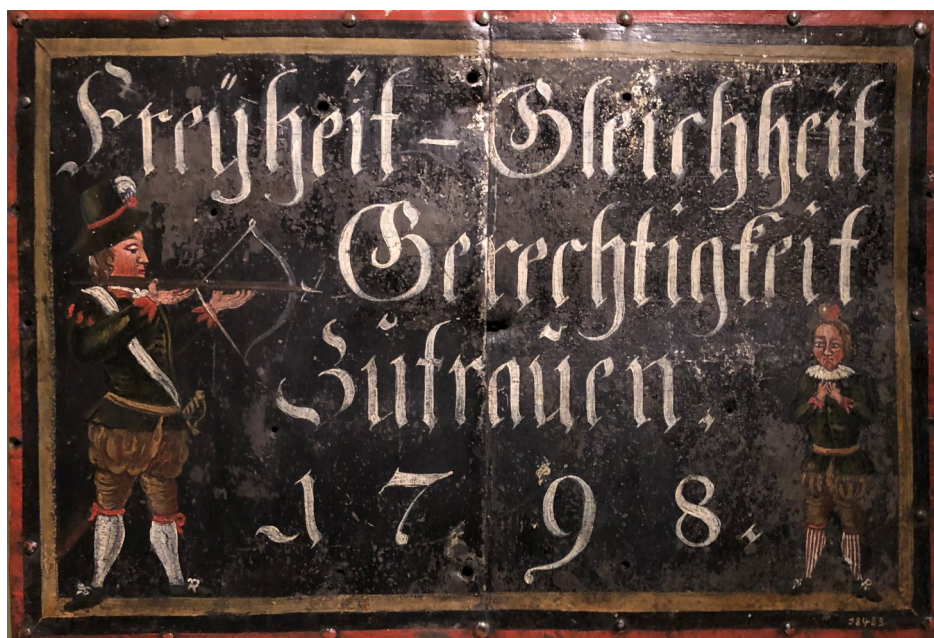 Freÿheit – Gleichheit
Gerechtigkeit
Zŭtraŭen.
1798.